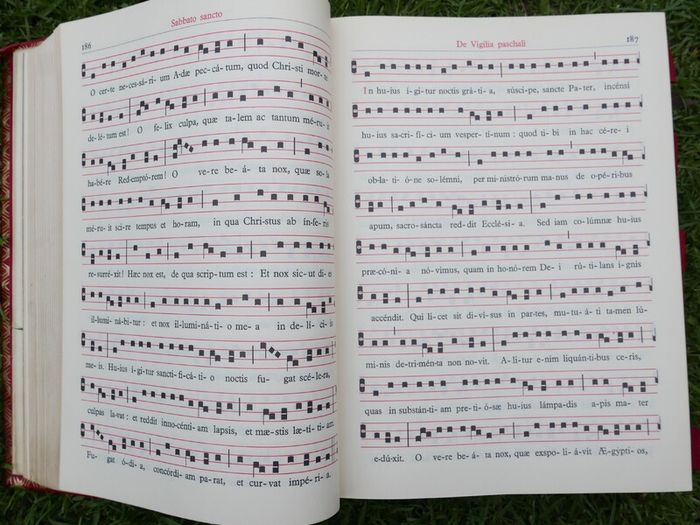 186
Sabbato sancto
O cer-te ne-ces-sá-ri-um A-dæ pec-cá-tum, quod Chri-sti mor-te
de-lé-tum est! O fe-lix culpa, quæ ta-lem ac tantum mé-ru-it
ha-bé-re Red-emptó-rem! O ve-re be-á-ta nox, quæ so-la
mé-ru-it sci-re tempus et ho-ram, in qua Christus ab ín-fe-ris
re-sur-ré-xit! Hæc nox est, de qua scrip-tum est : Et nox sic-ut di-es
il-lu-mi-ná-bi-tur : et nox il-lu-mi-ná-ti-o me-a in de-lí-ci-is
me-is. Hu-ius í-gi-tur sancti-fi-cá-ti-o noctis fu-gat scé-le-ra,
culpas la-vat : et reddit in-no-cén-ti-am lapsis, et mæ-stis læ-tí-ti-am.
Fu-gat ó-di-a, concór-di-am pa-rat, et cur-vat im-pé-ri-a.
De Vigilia paschali
187
In hu-ius í-gi-tur noctis grá-ti-a, súsci-pe, sancte Pa-ter, incénsi
hu-ius sa-cri-fí-ci-um vesper-tí-num : quod ti-bi in hac cé-re-i
ob-la-ti-ó-ne so-lémni, per mi-ni-stró-rum ma-nus de o-pé-ri-bus
apum, sacro-sáncta red-dit Ecclé-si-a. Sed iam co-lúmnæ hu-ius
præ-có-ni-a nó-vi-mus, quam in ho-nó-rem De-i rú-ti-lans i-gnis
accéndit. Qui li-cet sit di-ví-sus in par-tes, mu-tu-á-ti ta-men lú-
mi-nis de-tri-mén-ta non no-vit. A-li-tur e-nim li-quán-ti-bus ce-ris,
quas in substán-ti-am pre-ti-ó-sæ hu-ius lámpa-dis a-pis ma-ter
e-dú-xit. O ve-re be-á-ta nox, quæ exspo-li-á-vit Æ-gýpti-os,